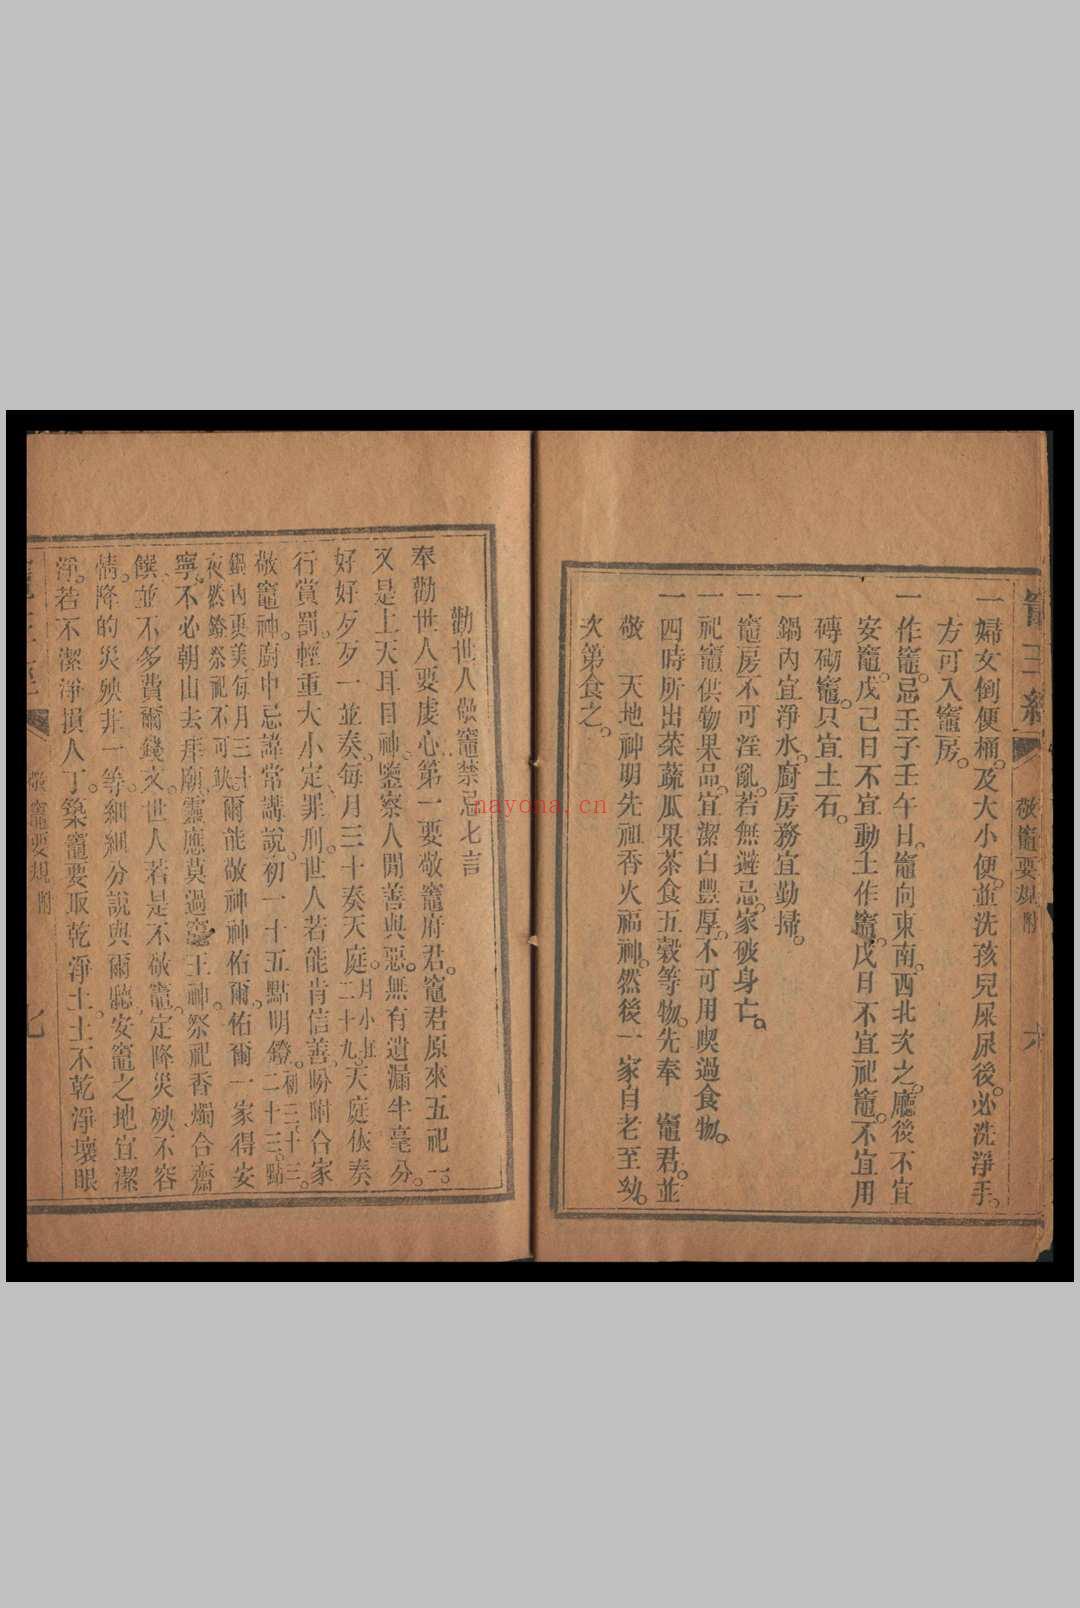 竈王經
敬竈要規 附
六
一婦女倒便桶。及大小便。並洗孩兒屎尿後。必洗淨手。
方可入竈房。
一作竈。忌壬子壬午日。竈向東南。西北次之。廳後不宜
安竈。戊己日不宜動土作竈。戊日不宜祀竈。不宜用
磚砌竈。只宜土石。
一鍋內宜淨水。廚房務宜勤掃。
一竈房不可淫亂。若無避忌。家破身亡。
一祀竈供物果品。宜潔白豐厚。不可用喫過食物。
一四時所出菜蔬瓜果茶食五穀等物。先奉 竈君。並
敬 天地神明先祖香火福神。然後一家自老至幼。
次第食之。
勸世人敬竈禁忌七言
奉勸世人要虔心。第一要敬竈府君。竈君原來五祀一。
又是上天耳目神。鑒察人間善與惡。無有遺漏半毫分。
好好歹歹一並奏。每月三十奏天庭。月小在二十九。天庭依奏
行賞罰。輕重大小定罪刑。世人若能肯信善。盼咐合家
敬竈神。廚中忌諱常講說。初一十五點明鐙。初三、十三、二十三。點
鍋內更美每月三十夜然鐙祭祀不可缺。爾能敬神神佑爾。佑爾一家得安
寧。不必朝山去拜廟。靈應莫過竈王神。祭祀香燭合齋
饌。並不多費爾錢文。世人若是不敬竈。定降災殃不容
情。降的災殃非一等。細細分說與爾聽。安竈之地宜潔
淨。若不潔淨損人丁。築竈要取乾淨土。土不乾淨壞眼
竈王經
敬竈要規 附
七
nayona.cn